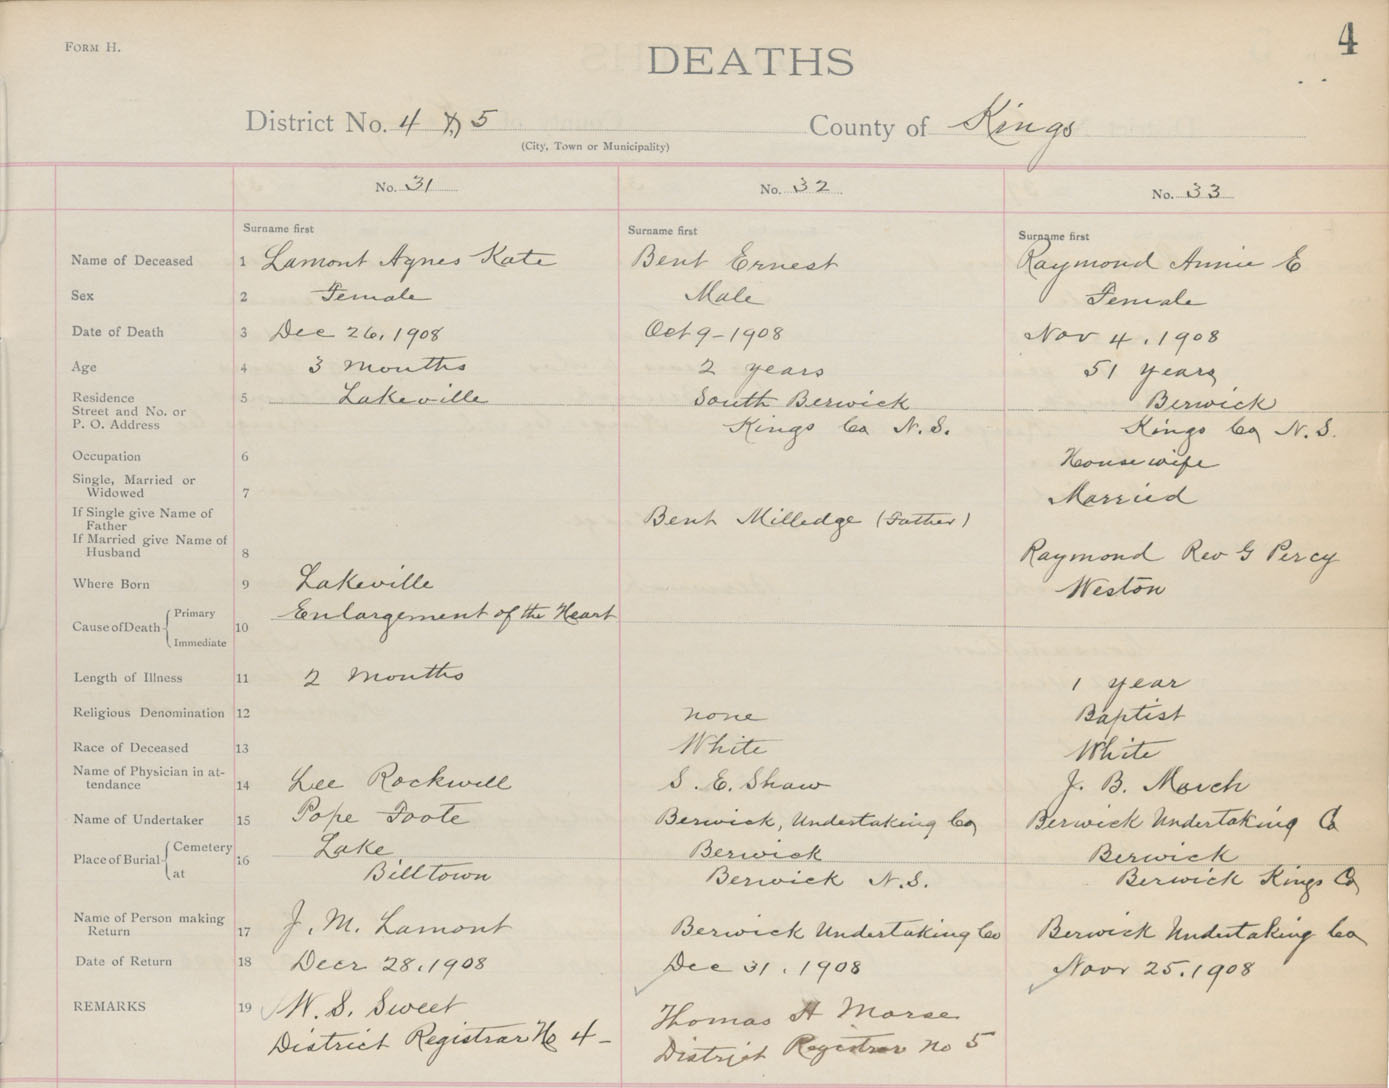 4
FORM H.
DEATHS
District No. 4 & 5 County of Kings
(City, Town or Municipality)
No. 31 No. 32 No. 33
Surname first Surname first Surname first
Name of Deceased 1 Lamont Agnes Kate Bent Ernest Raymond Annie E
Sex 2 Female Male Female
Date of Death 3 Dec 26, 1908 Oct 9-1908 Nov 4, 1908
Age 4 3 months 2 years 51 years
Residence 5 Lakeville South Berwick Berwick
Street and No. or
P. O. Address Kings Co N.S. Kings Co N.S.
Occupation 6 Housewife
Single, Married or
Widowed 7 Married
If Single give Name of
Father Bent Milledge (Father)
If Married give Name of
Husband 8 Raymond Rev G Percy
Where Born 9 Lakeville Weston
Cause of Death Primary Enlargement of the Heart
10
Immediate
Length of Illness 11 2 months 1 year
Religious Denomination 12 none Baptist
Race of Deceased 13 White White
Name of Physician in at-
tendance 14 Lee Rockwell S. E. Shaw J. B. March
Name of Undertaker 15 Pope Foote Berwick, Undertaking Co Berwick Undertaking Co
Place of Burial Cemetery 16 Lake Berwick Berwick
at Billtown Berwick N.S. Berwick Kings Co
Name of Person making
Return 17 J. M. Lamont Berwick Undertaking Co Berwick Undertaking Co
Date of Return 18 Decr 28, 1908 Dec 31, 1908 Novr 25, 1908
REMARKS 19 W. S. Sweet Thomas H Morse
District Registrar No 4- District Registrar no 5